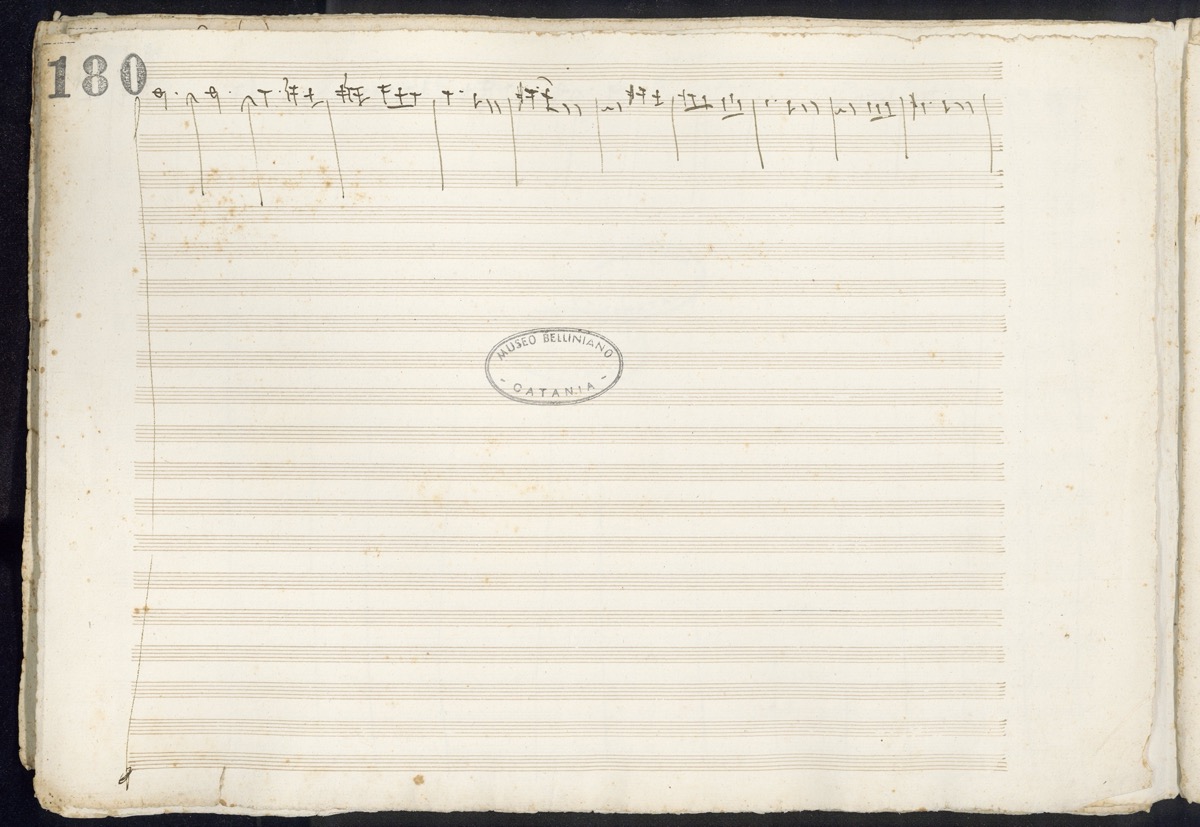 180
MUSEO BELLINIANO
- CATANIA -